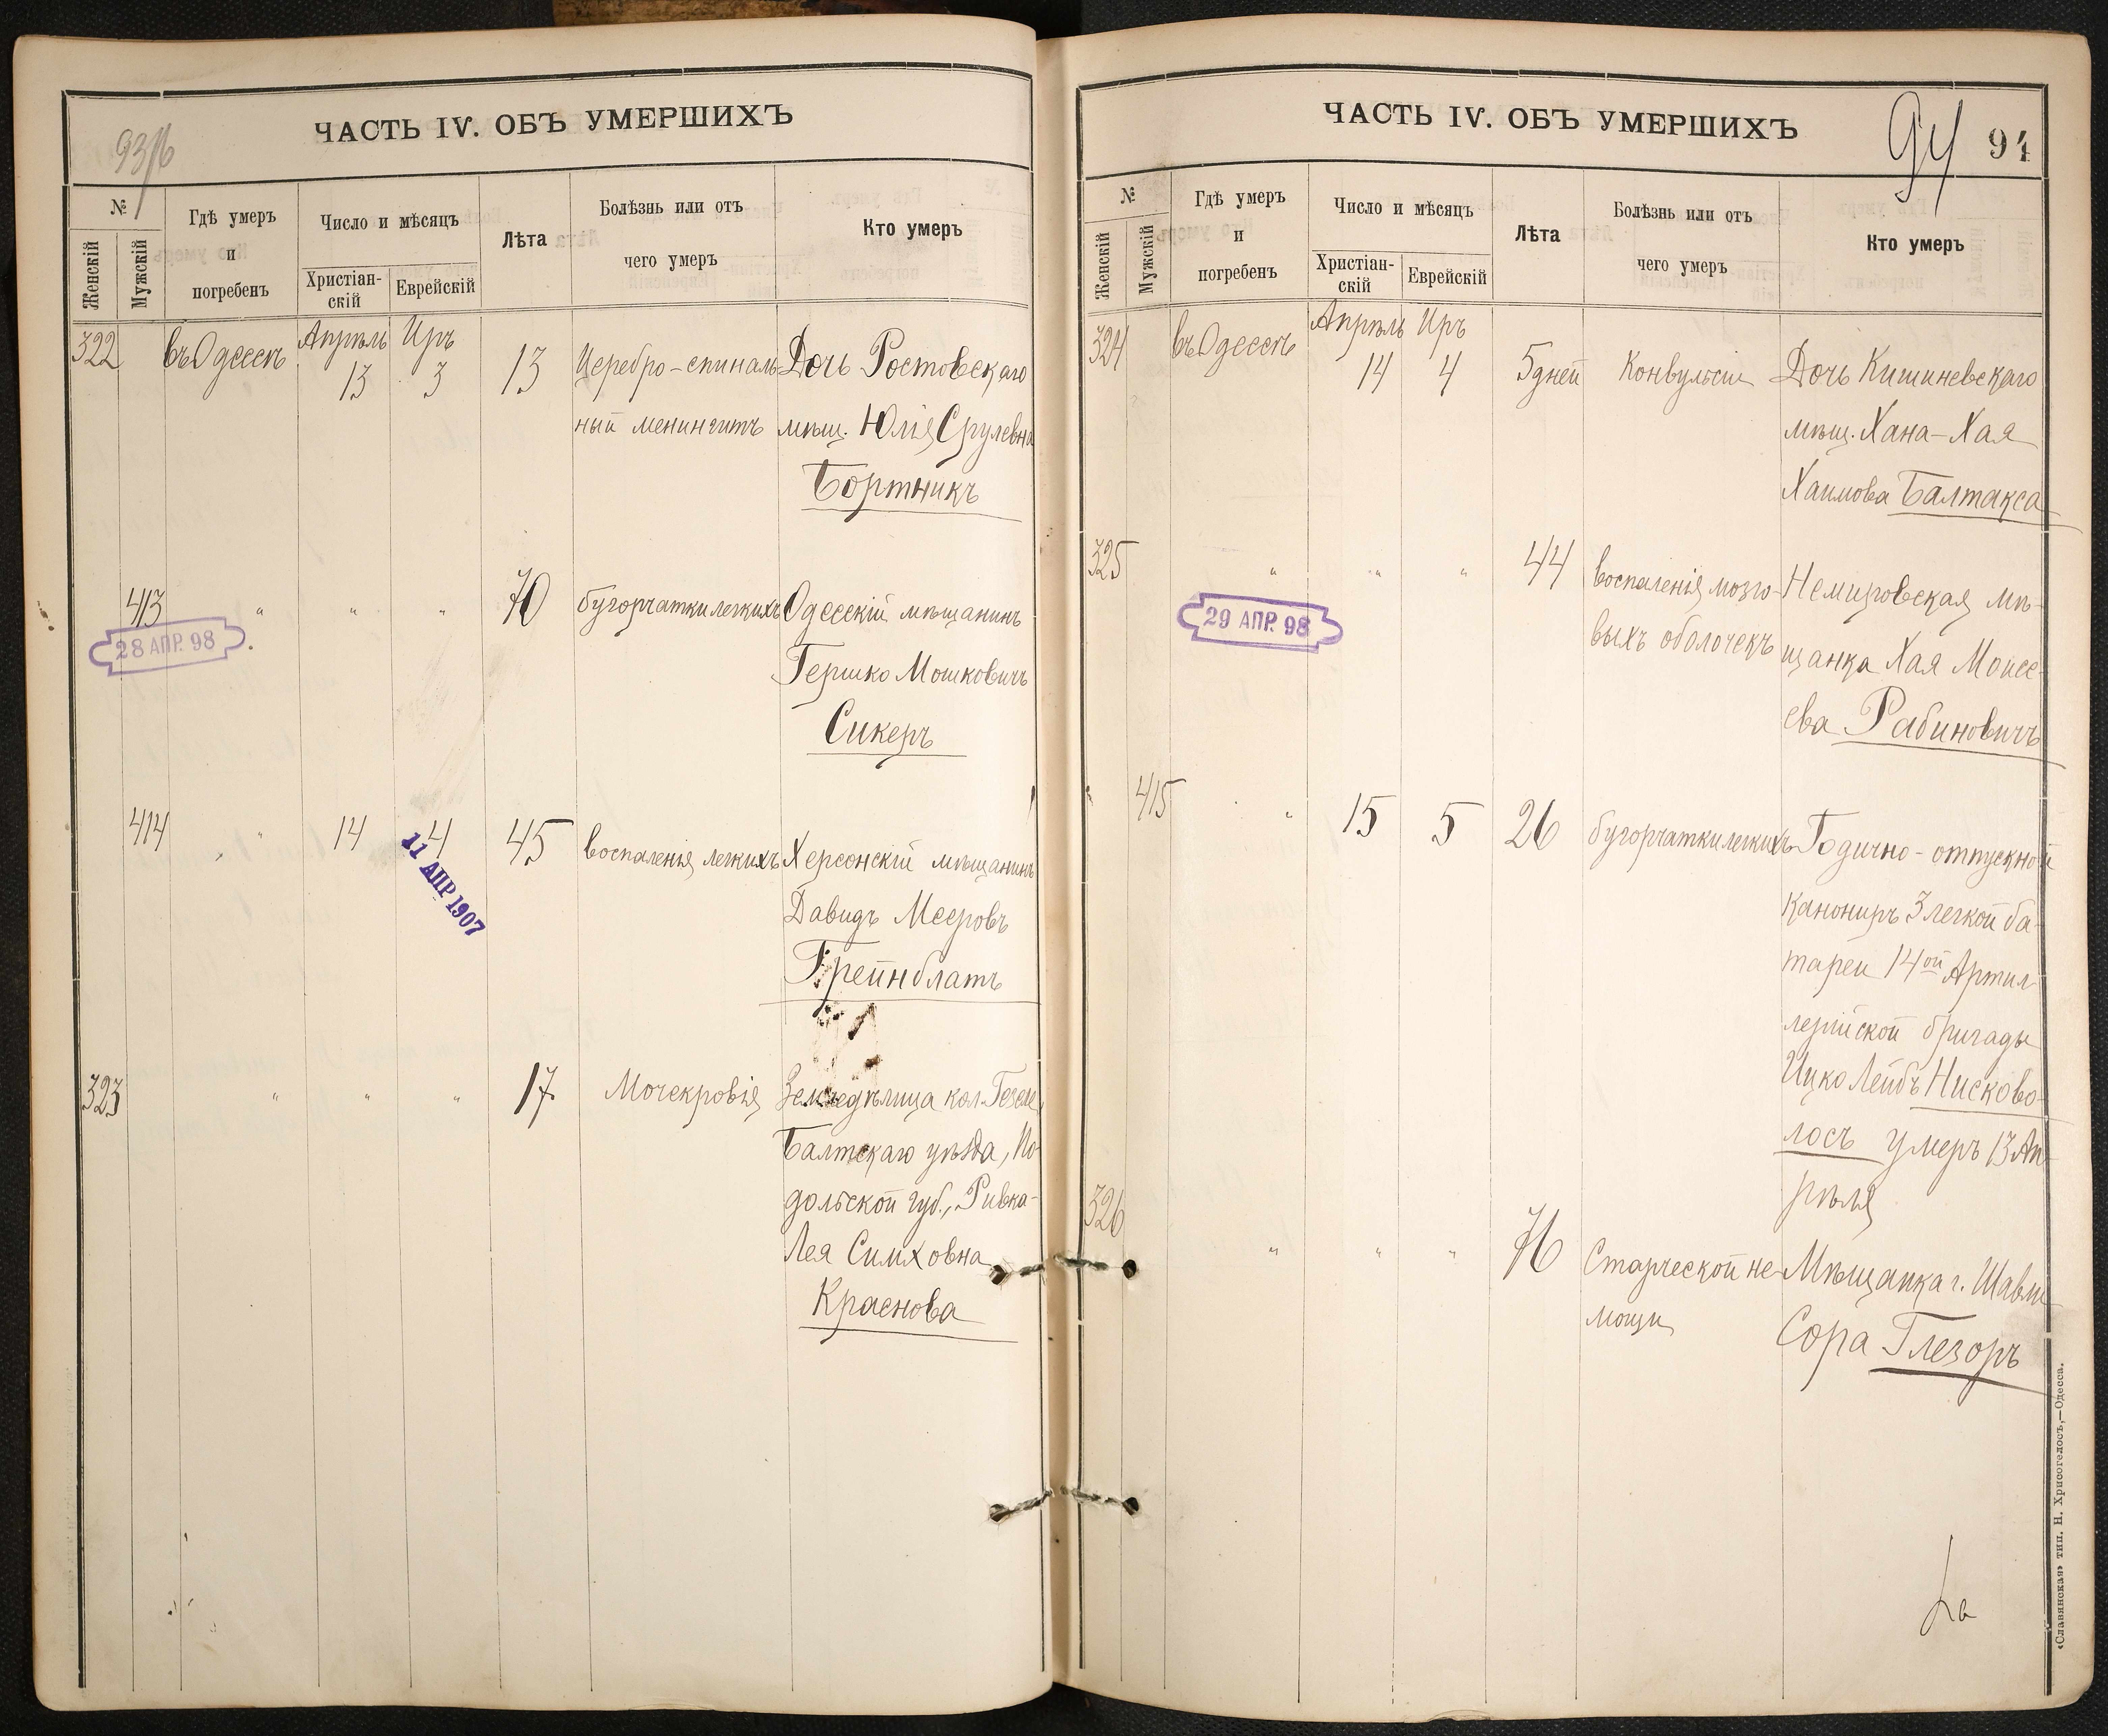 93/16
ЧАСТЬ IV. ОБЪ УМЕРШИХЪ
№
Женскій
Мужскій
Гдѣ умеръ
и
погребенъ
Число и мѣсяцъ
Христіан-
скій
Еврейскій
Лѣта
Болѣзнь или отъ
чего умеръ
Кто умеръ
322 въ Одессѣ Апрѣль 13 Иръ 3 13 Церебро-спиналь- Дочь Ростовскаго
ный менингитъ мѣщ. Юлія Срулевна
Бортникъ
413 " " " 70 бугорчатки легкихъ Одесскій мѣщанинъ
28 АПР. 98
Гершко Мошковичъ
Сикеръ
414 " 14 4 45 воспаленія легкихъ Херсонскій мѣщанинъ
11 АПР 1907
Давидъ Мееровъ
Грейнблатъ
323 " " " 17 Мочекровія Земледѣлица кол.
Балтскаго уѣзда, По-
дольской губ., Ривка-
Лея Симховна
Краснова
ЧАСТЬ IV. ОБЪ УМЕРШИХЪ
94
94
№
Женскій
Мужскій
Гдѣ умеръ
и
погребенъ
Число и мѣсяцъ
Христіан-
скій
Еврейскій
Лѣта
Болѣзнь или отъ
чего умеръ
Кто умеръ
324 въ Одессѣ Апрѣль 14 Иръ 4 5 дней Конвульсіи Дочь Кишиневскаго
мѣщ. Хана-Хая
Хаимова Балтакса
325 " " " 44 воспаленія мозго- Немировская мѣ-
29 АПР. 98
выхъ оболочекъ щанка Хая Моисе-
ева Рабиновичъ
415 " 15 5 26 бугорчатки легкихъ Годично-отпускной
канониръ 3 легкой ба-
тареи 14ой Артил-
лерійской бригады
Ицко Лейбъ Нисково-
лосъ умеръ 13 Ап-
рѣля
326 " " " 76 Старческой не- Мѣщанка г. Шавли
мощи Сора Глезоръ
«Славянская» тип. Н. Хрисогелосъ,—Одесса.